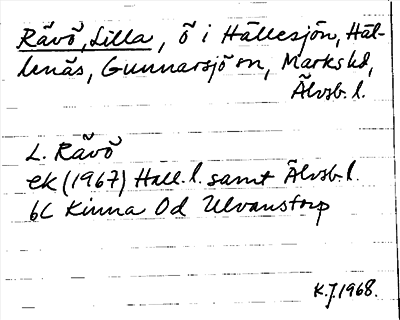 Rävö, Lilla, ö i Hällesjön, Häl-
lenäs, Gunnarsjö sn, Marks hd,
Älvsb. l.
L. Rävö
ek (1967) Hall. l. samt Älvsb. l.
6C Kinna Od Ulvanstorp
K.J. 1968.